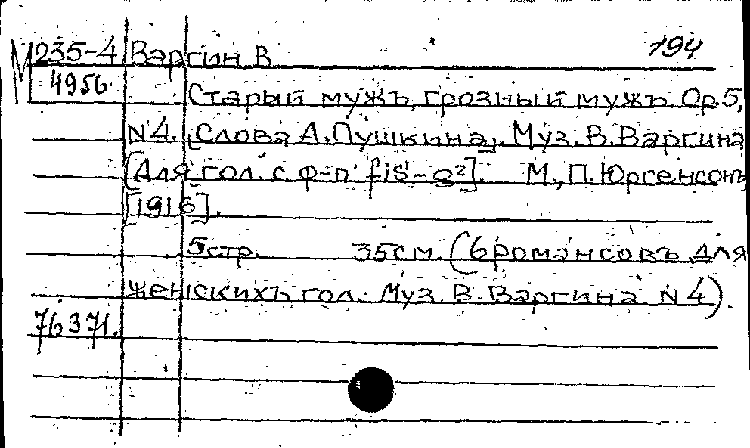 М 235-4 Варгин В. 194
4956.
Старый мужъ, грозный мужъ. Op.5,
N4. [Слова А.Пушкина]. Муз. В. Варгина
[Для гол. с ф-п fis-g²]. М., П. Юргенсонъ
[1916].
5 стр. 35см. (6 романсовъ для
женскихъ гол. Муз. В. Варгина N 4).
76371.